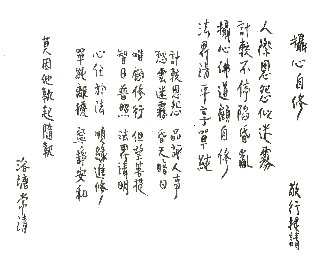 攝心自修
敬行握請
人際恩怨似迷霧
計較不停陷昏亂
攝心佛道顧自修
法界清平享單純
計較因怨心 品評人事
怨雲迷霧 昏天暗日
唯願修行 但望菩提
智日普照 法界清明
心住於法 順緣進修
單純離擾 寂靜安和
莫因他執起隨執
洛塘常清